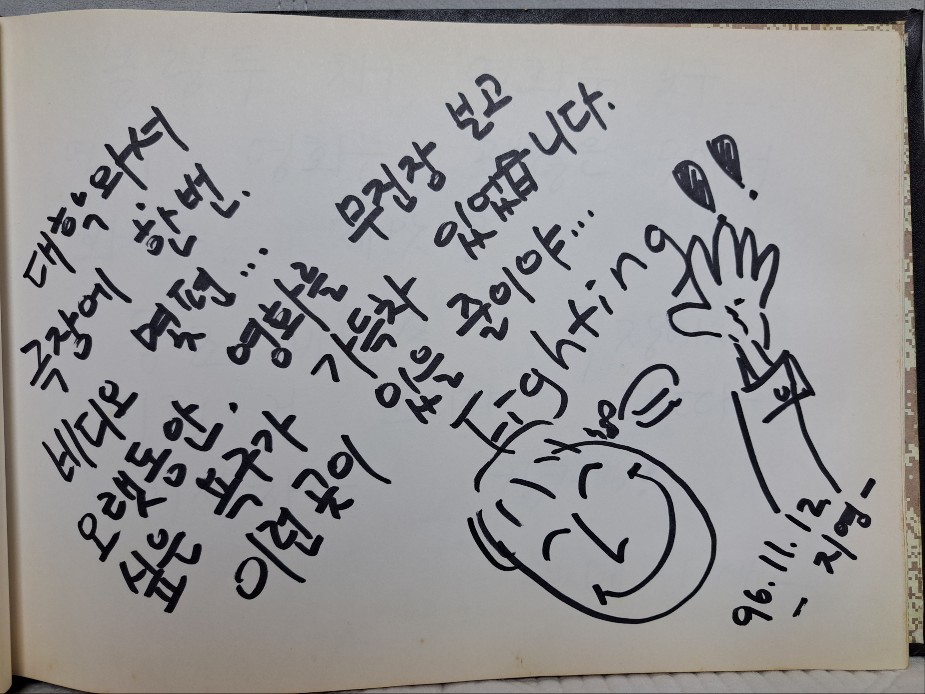 대학와서
극장에 한번.
비디오 몇편...
오랫동안. 영화를 무진장 보고
싶은 욕구가 가득차 있었습니다.
이런 곳이 있을 줄이야...
Fighting!!
96.11.12
-지영-